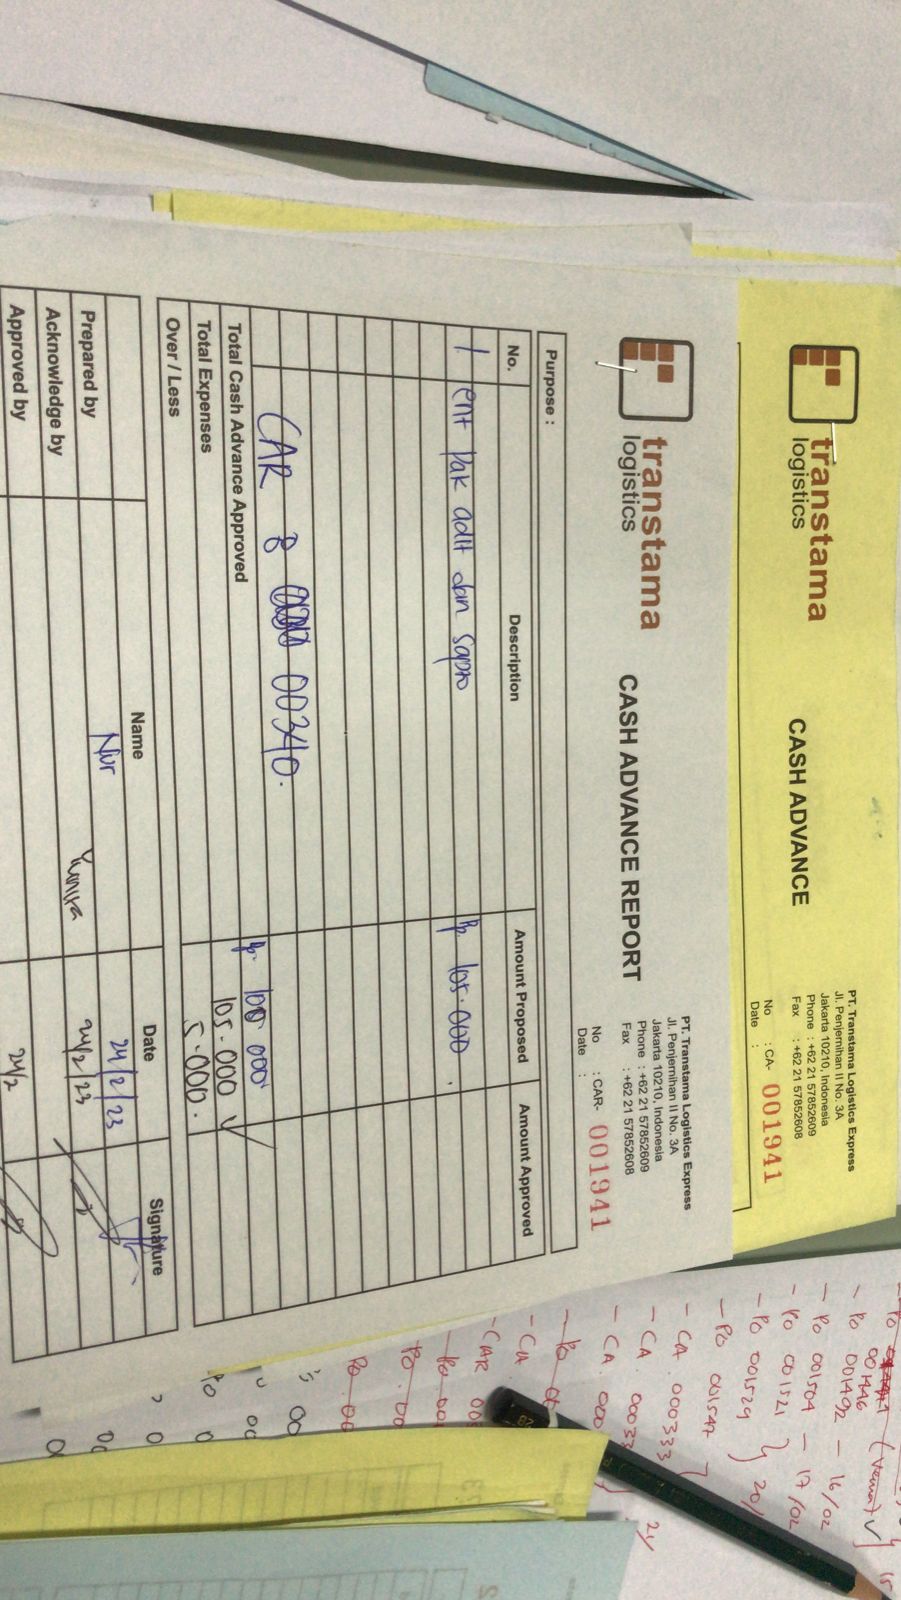 transtama
logistics
CASH ADVANCE
PT. Transtama Logistics Express
Jl. Penjernihan II No. 3A
Jakarta 10210, Indonesia
Phone : +62 21 57852609
Fax : +62 21 57852608
No : CA- 001941
Date :
transtama
logistics
CASH ADVANCE REPORT
PT. Transtama Logistics Express
Jl. Penjernihan II No. 3A
Jakarta 10210, Indonesia
Phone : +62 21 57852609
Fax : +62 21 57852608
No : CAR- 001941
Date :
Purpose :
No. Description Amount Proposed Amount Approved
1. ent pak adit dan sapto Rp. 105.000
CAR 00340.
Total Cash Advance Approved Rp. 100.000
Total Expenses 105.000
Over / Less 5.000.
Name Date Signature
Prepared by Nur 24/2/23
Acknowledge by 24/2/23
Approved by 24/2
- PO 001446
- PO 001492 - 16/02
- PO 001504 - 17/02
- PO 001521
- PO 001529 20/
- PO 001547
- CA 000333
- CA 00033
- CA 000
- PO 00
- CA
- CAR 00